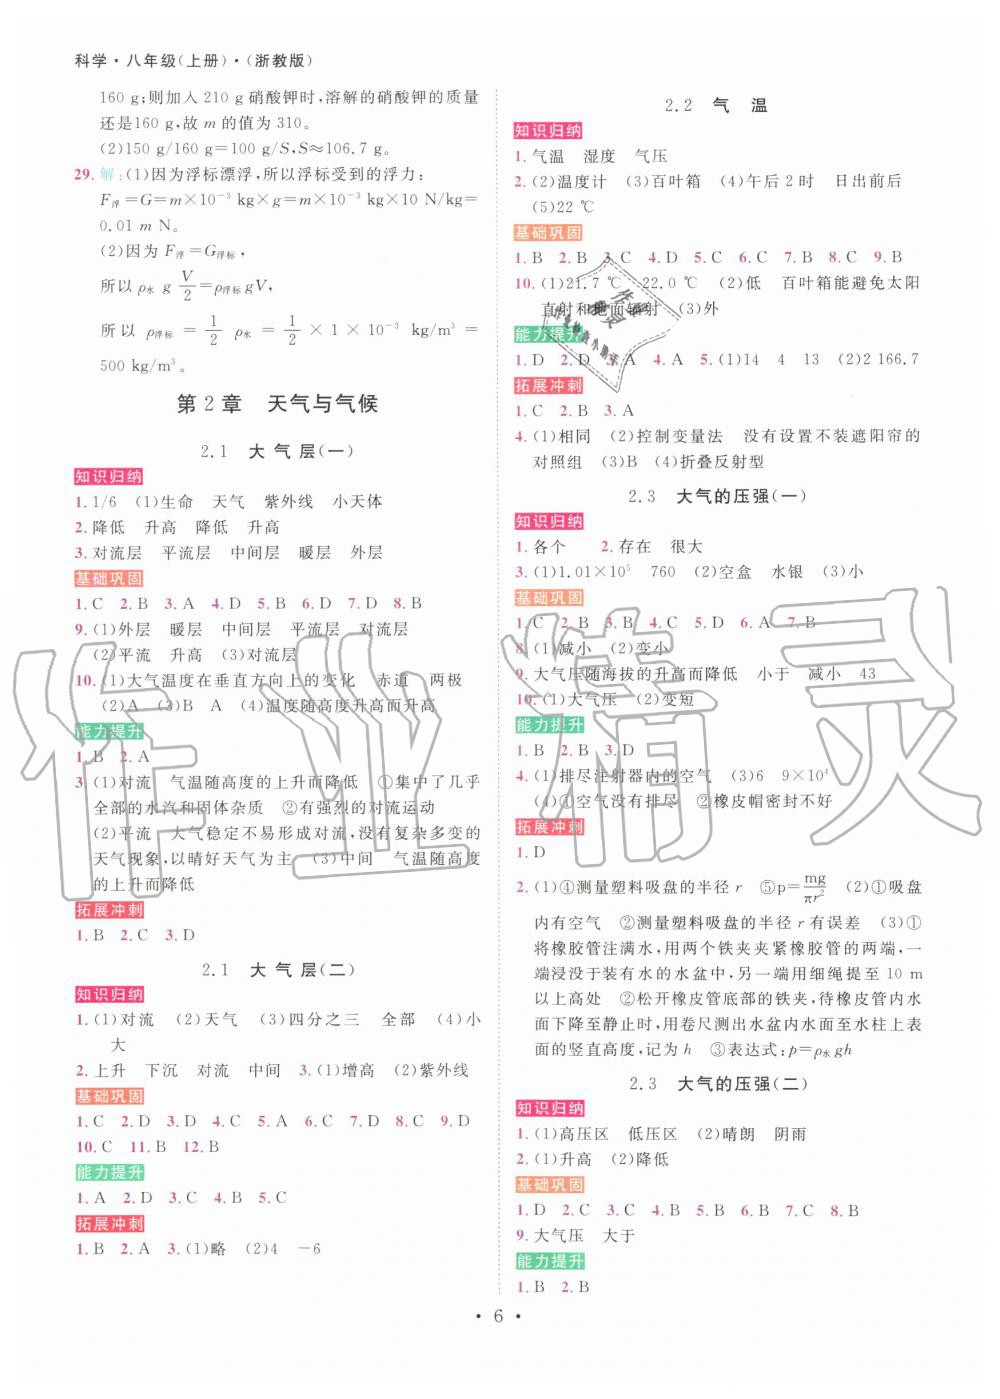 科学·八年级(上册)·(浙教版)
160 g;则加入 210 g 硝酸钾时,溶解的硝酸钾的质量
还是160 g,故 m 的值为 310。
(2)150 g/160 g=100 g/S,S≈106.7 g。
29. 解:(1)因为浮标漂浮,所以浮标受到的浮力:
F浮=G=m×10⁻³ kg×g=m×10⁻³ kg×10 N/kg=
0.01 m N。
(2)因为 F浮=G浮标,
所以 ρ水 g V/2=ρ浮标gV,
所以 ρ浮标 = 1/2 ρ水 = 1/2 × 1 × 10⁻³ kg/m³ =
500 kg/m³。
第 2 章 天气与气候
2.1 大气层(一)
知识归纳
1. 1/6 (1)生命 天气 紫外线 小天体
2. 降低 升高 降低 升高
3. 对流层 平流层 中间层 暖层 外层
基础巩固
1. C 2. B 3. A 4. D 5. B 6. D 7. D 8. B
9. (1)外层 暖层 中间层 平流层 对流层
(2)平流 升高 (3)对流层
10. (1)大气温度在垂直方向上的变化 赤道 两极
(2)A (3)B A (4)温度随高度升高而升高
能力提升
1. B 2. A
3. (1)对流 气温随高度的上升而降低 ①集中了几乎
全部的水汽和固体杂质 ②有强烈的对流运动
(2)平流 大气稳定不易形成对流,没有复杂多变的
天气现象,以晴好天气为主 (3)中间 气温随高度
的上升而降低
拓展冲刺
1. B 2. C 3. D
2.1 大气层(二)
知识归纳
1. (1)对流 (2)天气 (3)四分之三 全部 (4)小
大
2. 上升 下沉 对流 中间 3. (1)增高 (2)紫外线
基础巩固
1. C 2. D 3. D 4. C 5. C 6. C 7. D 8. C 9. D
10. C 11. B 12. B
能力提升
1. A 2. D 3. C 4. B 5. C
拓展冲刺
1. B 2. A 3. (1)略 (2)4 -6
2.2 气 温
知识归纳
1. 气温 湿度 气压
2. (2)温度计 (3)百叶箱 (4)午后 2 时 日出前后
(5)22 ℃
基础巩固
1. B 2. B 3. C 4. D 5. C 6. C 7. B 8. C 9. B
10. (1)21.7 ℃ 22.0 ℃ (2)低 百叶箱能避免太阳
直射和地面辐射 (3)外
能力提升
1. D 2. D 3. A 4. A 5. (1)14 4 13 (2)2 166.7
拓展冲刺
1. C 2. B 3. A
4. (1)相同 (2)控制变量法 没有设置不装遮阳帘的
对照组 (3)B (4)折叠反射型
2.3 大气的压强(一)
知识归纳
1. 各个 2. 存在 很大
3. (1)1.01×10⁵ 760 (2)空盒 水银 (3)小
基础巩固
1. C 2. B 3. B 4. C 5. D 6. A 7. B
8. (1)减小 (2)变小
9. 大气压随海拔的升高而降低 小于 减小 43
10. (1)大气压 (2)变短
能力提升
1. B 2. B 3. D
4. (1)排尽注射器内的空气 (3)6 9×10⁴
(4)①空气没有排尽 ②橡皮帽密封不好
拓展冲刺
1. D
2. (1)④测量塑料吸盘的半径 r ⑤p=mg/πr² (2)①吸盘
内有空气 ②测量塑料吸盘的半径 r 有误差 (3)①
将橡胶管注满水,用两个铁夹夹紧橡胶管的两端,一
端浸没于装有水的水盆中,另一端用细绳提至 10 m
以上高处 ②松开橡皮管底部的铁夹,待橡皮管内水
面下降至静止时,用卷尺测出水盆内水面至水柱上表
面的竖直高度,记为 h ③表达式:p=ρ水 gh
2.3 大气的压强(二)
知识归纳
1. (1)高压区 低压区 (2)晴朗 阴雨
2. (1)升高 (2)降低
基础巩固
1. D 2. C 3. C 4. B 5. B 6. C 7. B 8. B
9. 大气压 大于
能力提升
1. B 2. B
· 6 ·
作业精灵